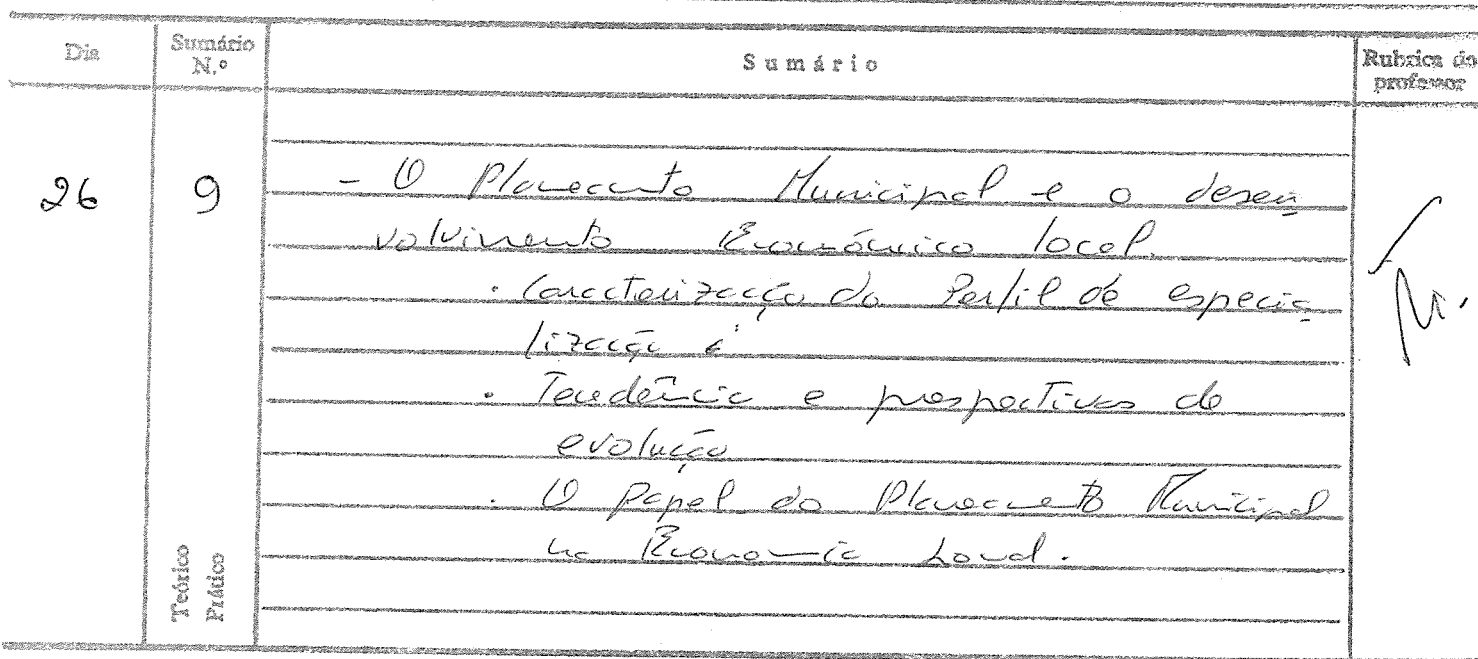 Dia Sumário N.º Sumário Rubrica do professor
26 9 - O Planeamento Municipal e o desen
volvimento Económico local.
. Caracterização do Perfil de especia
lização e
. Tendência e prospectivas de
evolução
. O Papel do Planeamento Municipal
na Economia Local.
Teórico
Prático